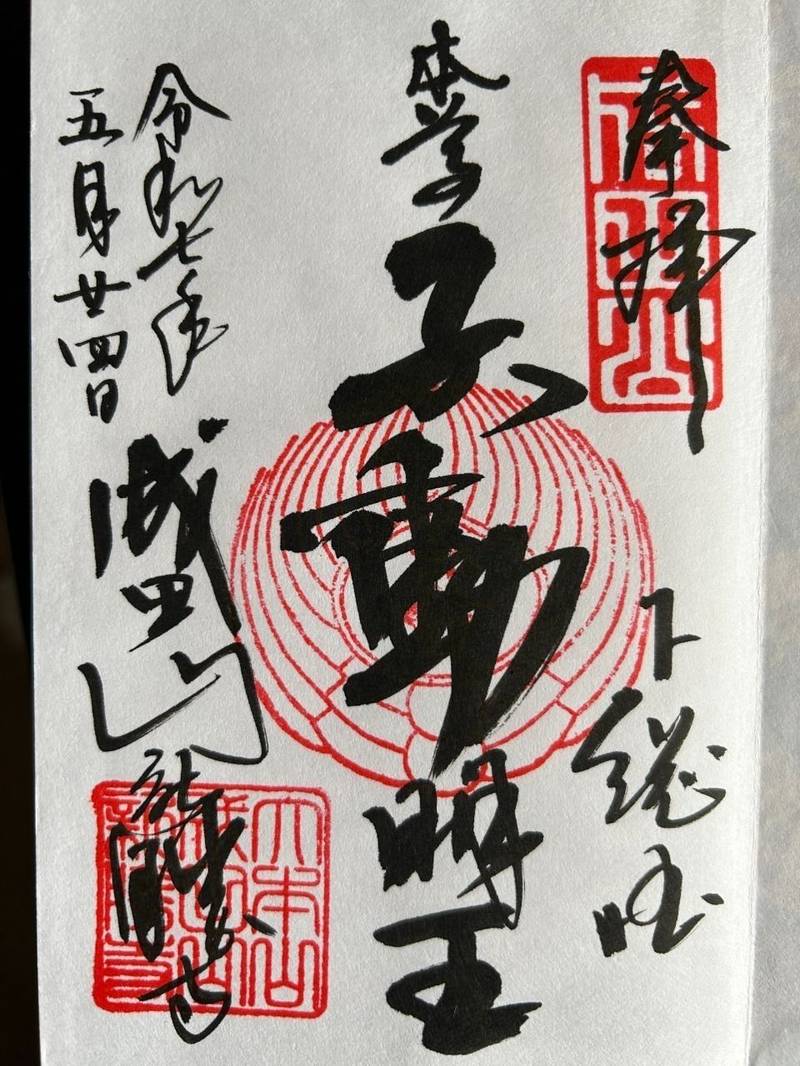 奉拝
成田山
下総国
本尊
不動明王
令和七年
五月廿四日
成田山
新勝寺
大本山